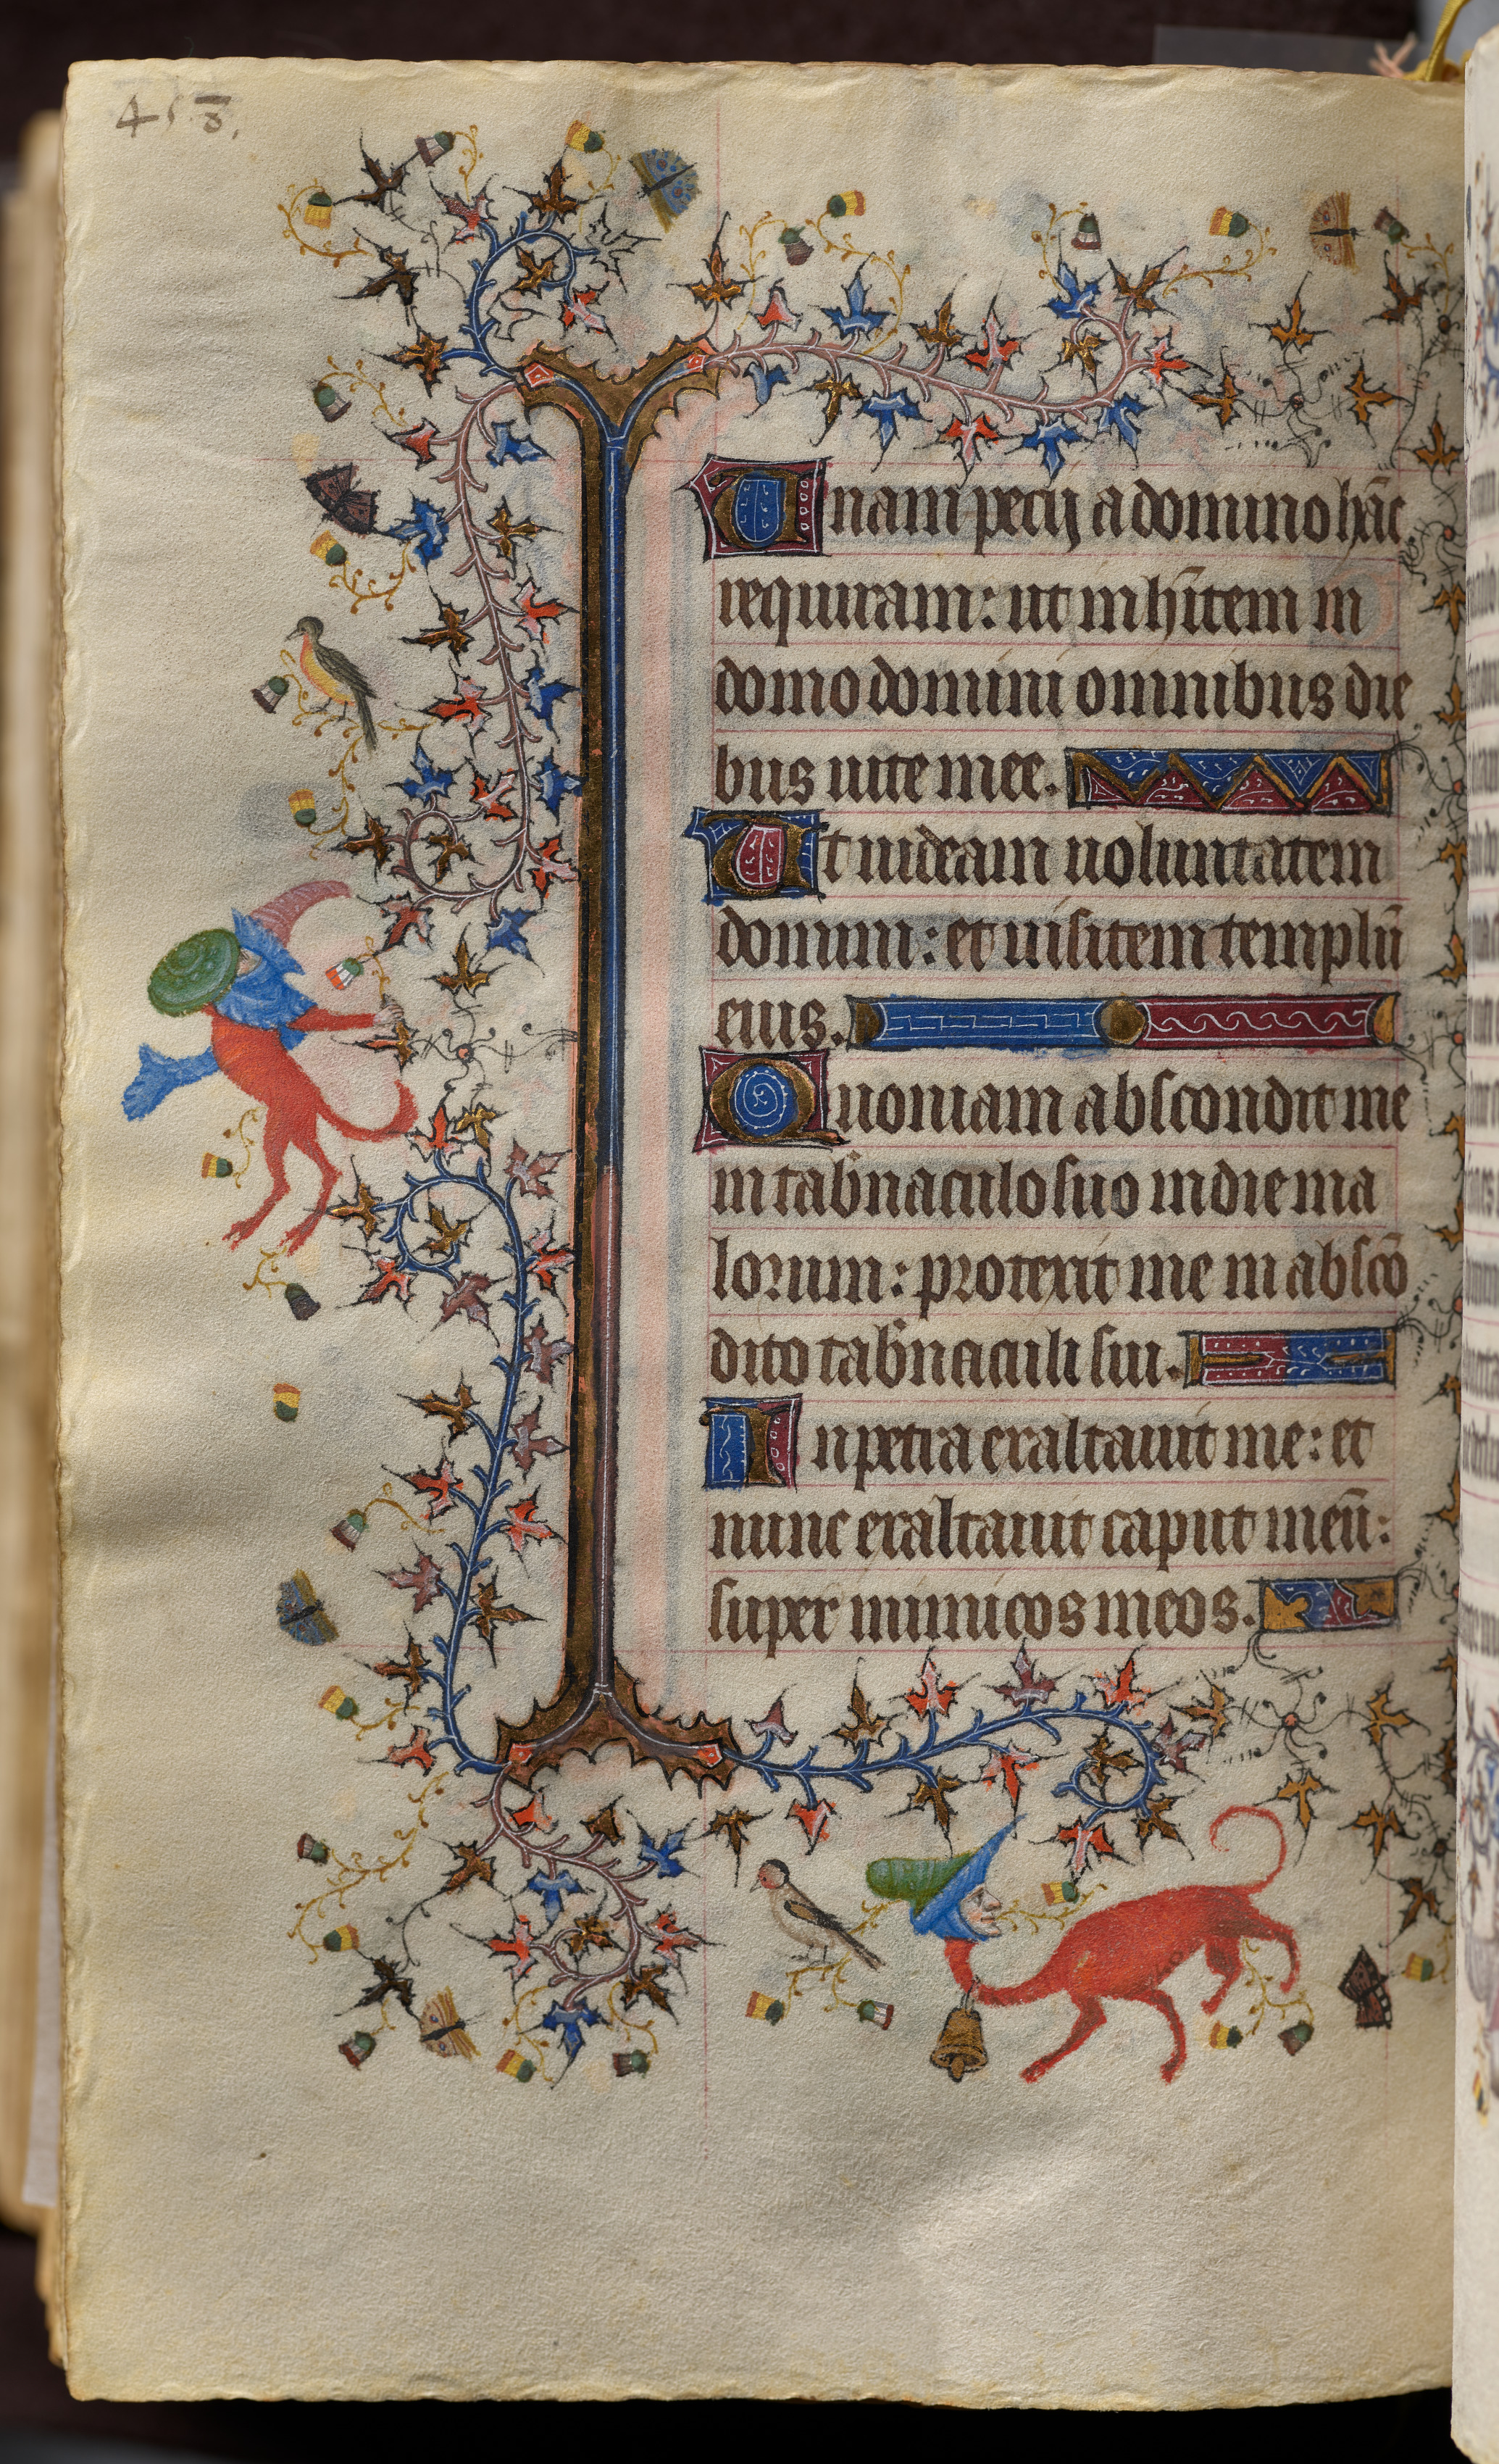 453.
Unam pecij a domino hāc
requiram: ut inhītem in
domo domini omnibus die
bus uite mee.
Ut uideam uoluntatem
domini: et uisitem templū
eius.
Quoniam abscondit me
in tab̄naculo suo in die ma
lorum: protexit me in abscō
dito tab̄naculi sui.
In petra exaltauit me: et
nunc exaltauit caput meū:
super inimicos meos.